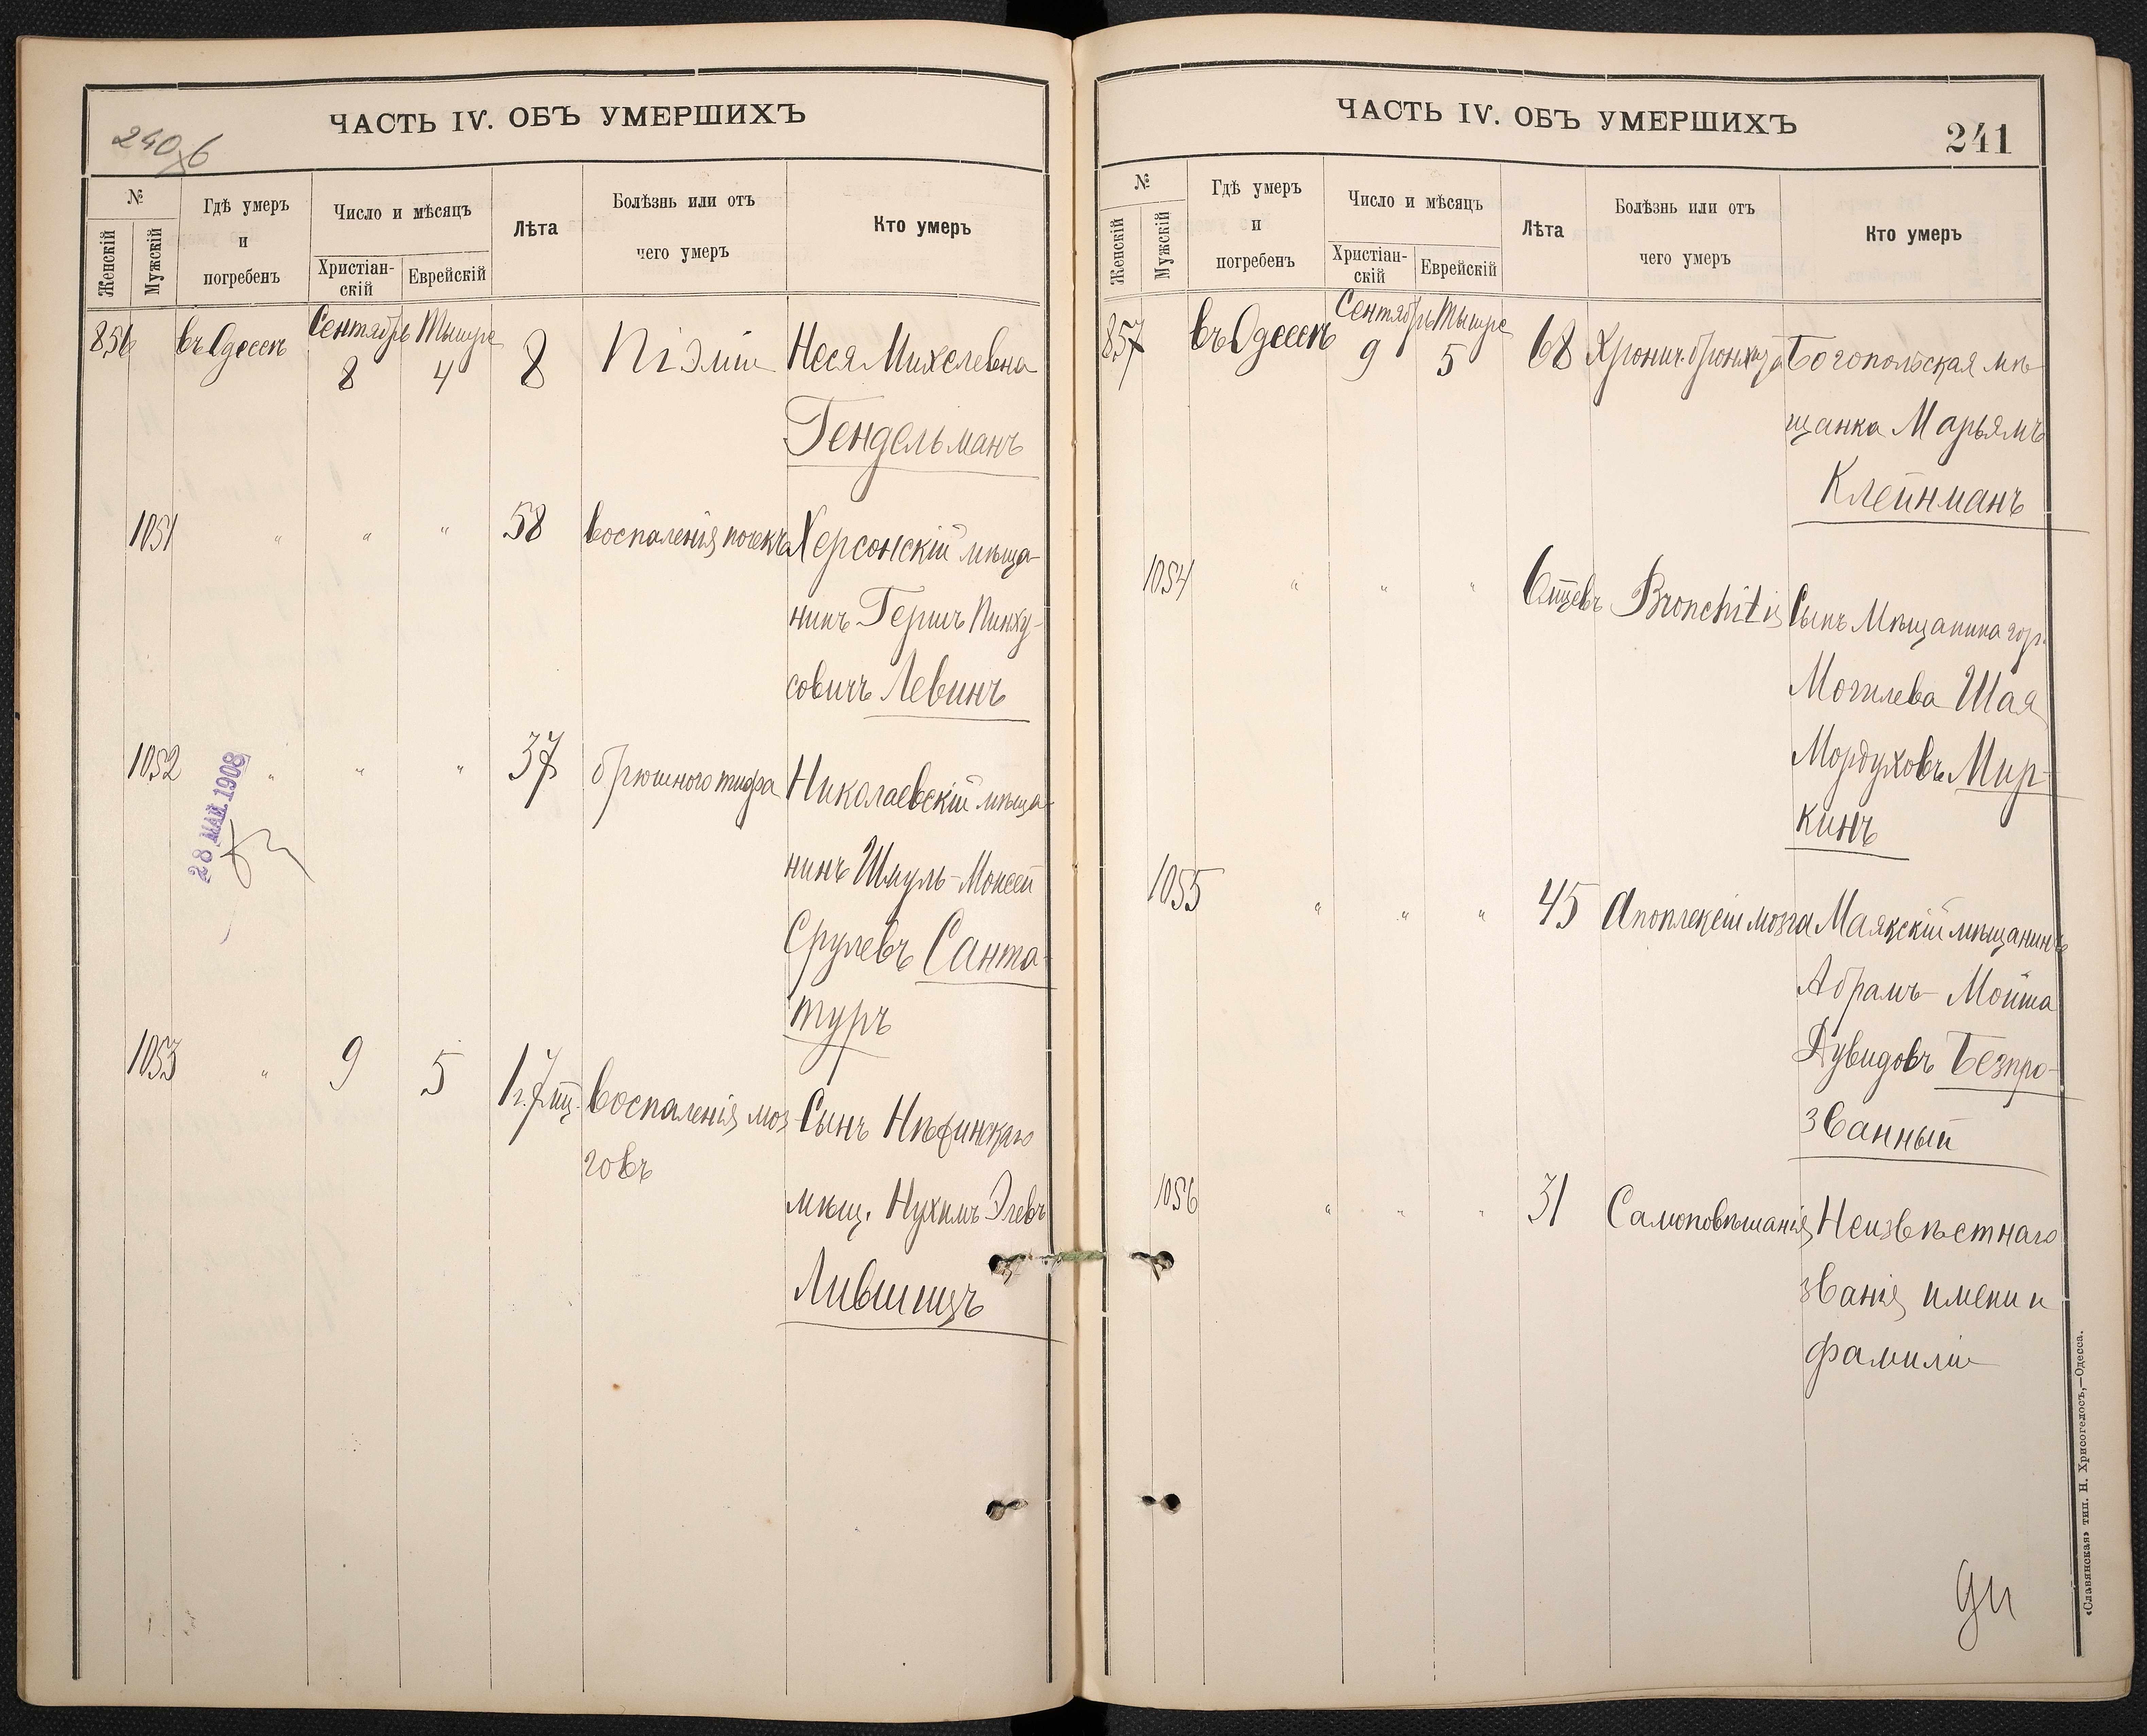 ЧАСТЬ IV. ОБЪ УМЕРШИХЪ
240 б
№
Женскій
Мужскій
Гдѣ умеръ
и
погребенъ
Число и мѣсяцъ
Христіан-
скій
Еврейскій
Лѣта
Болѣзнь или отъ
чего умеръ
Кто умеръ
856 въ Одессѣ Сентябрь 8 Тышре 4 8 Піэміи Неся Михелевна
Гендельманъ
1051 " " " 58 воспаленія почекъ Херсонскій мѣща-
нинъ Гершъ Пинху-
совичъ Левинъ
1052 " " " 37 брюшного тифа Николаевскій мѣща-
нинъ Шмуль-Мойсей
Срулевъ Санта-
туръ
28 МАЙ 1908
1053 " 9 5 1 г. 7 мц. воспаленія моз- Сынъ Нѣжинскаго
говъ
мѣщ. Нухимъ Элевъ
Лившицъ
ЧАСТЬ IV. ОБЪ УМЕРШИХЪ
241
№
Женскій
Мужскій
Гдѣ умеръ
и
погребенъ
Число и мѣсяцъ
Христіан-
скій
Еврейскій
Лѣта
Болѣзнь или отъ
чего умеръ
Кто умеръ
857 въ Одессѣ Сентябрь 9 Тышре 5 68 Хронич. бронхита Богопольская мѣ-
щанка Марьямъ
Клейнманъ
1054 " " " 6 мцевъ Bronchitis Сынъ Мѣщанина гор.
Могилева Шая
Мордуховъ Мир-
кинъ
1055 " " " 45 Апоплексіи мозга Маякскій мѣщанинъ
Абрамъ-Мойша
Дувидовъ Безпро-
званный
1056 " " " 31 Самоповѣшанія Неизвѣстнаго
званія имени и
фамиліи
«Славянская» тип. Н. Хрисогелосъ,—Одесса.